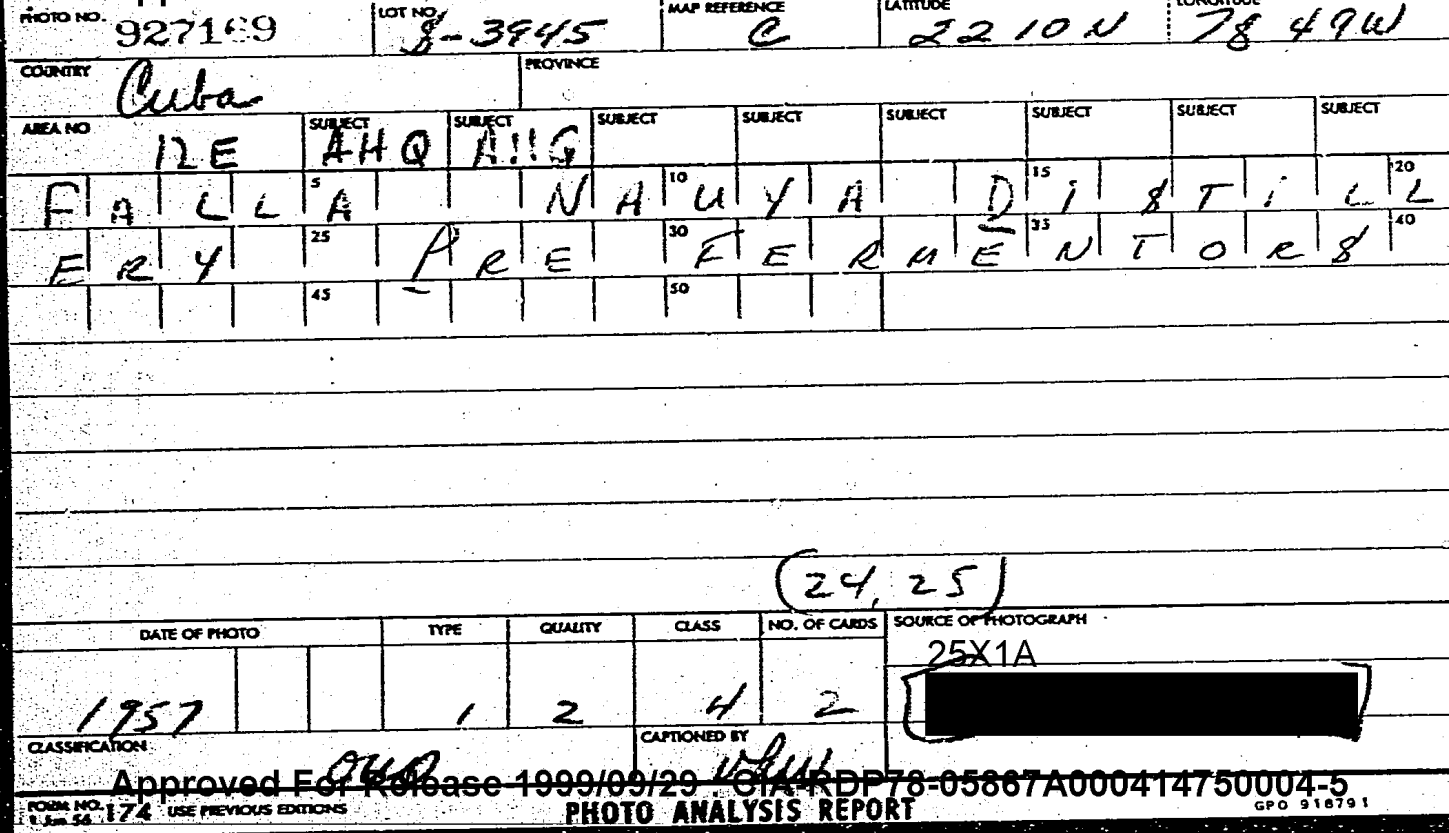 PHOTO NO. 927169 LOT NO. 8-3945 MAP REFERENCE C LATITUDE 22 10 N LONGITUDE 78 49W
COUNTRY Cuba PROVINCE
AREA NO 12E SUBJECT AHQ SUBJECT AHG SUBJECT SUBJECT SUBJECT SUBJECT SUBJECT SUBJECT
5 10 15 20
FALLA NAUYA DISTILL
25 30 35 40
ERY PRE FERMENTORS
45 50
(24, 25)
DATE OF PHOTO TYPE QUALITY CLASS NO. OF CARDS SOURCE OF PHOTOGRAPH
25X1A
1957 1 2 4 2
CLASSIFICATION OUO CAPTIONED BY
Approved For Release 1999/09/29 : CIA-RDP78-05867A000414750004-5
FORM NO. 174 USE PREVIOUS EDITIONS PHOTO ANALYSIS REPORT GPO 918791
1 Jun 56